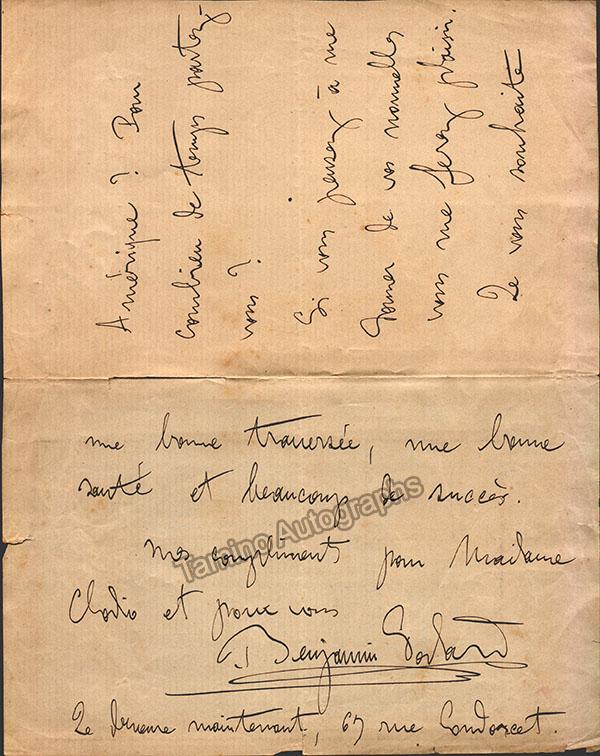 Amérique ? Pour
combien de temps partez-
vous ?
Si vous pensez à me
donner de vos nouvelles
vous me ferez plaisir.
Je vous souhaite
une bonne traversée, une bonne
santé et beaucoup de succès.
Mes compliments pour Madame
Clodio et pour vous
Benjamin Godard
Je demeure maintenant, 67 rue Condorcet.
Tamino Autographs